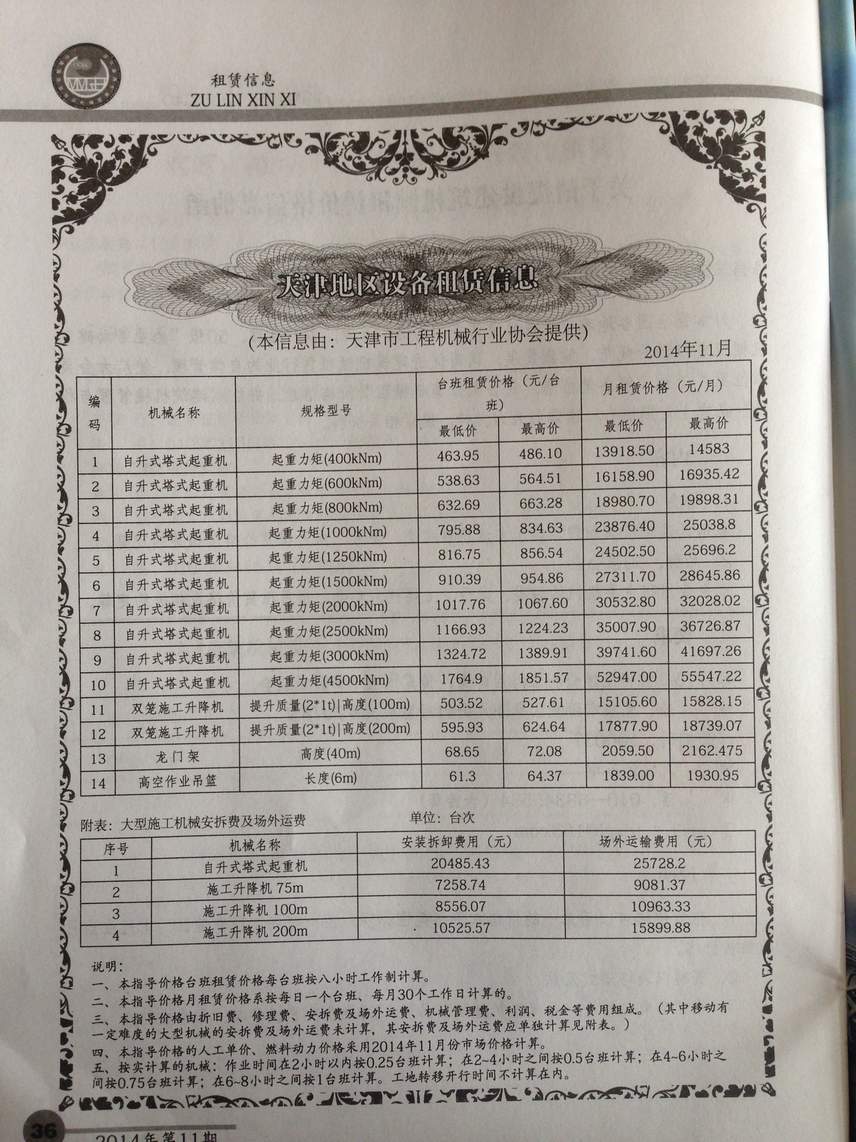 租赁信息
ZU LIN XIN XI
天津地区设备租赁信息
(本信息由：天津市工程机械行业协会提供)
2014年11月
编码 机械名称 规格型号 台班租赁价格（元/台班） 月租赁价格（元/月）
最低价 最高价 最低价 最高价
1 自升式塔式起重机 起重力矩(400kNm) 463.95 486.10 13918.50 14583
2 自升式塔式起重机 起重力矩(600kNm) 538.63 564.51 16158.90 16935.42
3 自升式塔式起重机 起重力矩(800kNm) 632.69 663.28 18980.70 19898.31
4 自升式塔式起重机 起重力矩(1000kNm) 795.88 834.63 23876.40 25038.8
5 自升式塔式起重机 起重力矩(1250kNm) 816.75 856.54 24502.50 25696.2
6 自升式塔式起重机 起重力矩(1500kNm) 910.39 954.86 27311.70 28645.86
7 自升式塔式起重机 起重力矩(2000kNm) 1017.76 1067.60 30532.80 32028.02
8 自升式塔式起重机 起重力矩(2500kNm) 1166.93 1224.23 35007.90 36726.87
9 自升式塔式起重机 起重力矩(3000kNm) 1324.72 1389.91 39741.60 41697.26
10 自升式塔式起重机 起重力矩(4500kNm) 1764.9 1851.57 52947.00 55547.22
11 双笼施工升降机 提升质量(2*1t)|高度(100m) 503.52 527.61 15105.60 15828.15
12 双笼施工升降机 提升质量(2*1t)|高度(200m) 595.93 624.64 17877.90 18739.07
13 龙门架 高度(40m) 68.65 72.08 2059.50 2162.475
14 高空作业吊篮 长度(6m) 61.3 64.37 1839.00 1930.95
附表：大型施工机械安拆费及场外运费 单位：台次
序号 机械名称 安装拆卸费用（元） 场外运输费用（元）
1 自升式塔式起重机 20485.43 25728.2
2 施工升降机 75m 7258.74 9081.37
3 施工升降机 100m 8556.07 10963.33
4 施工升降机 200m 10525.57 15899.88
说明：
一、本指导价格台班租赁价格每台班按八小时工作制计算。
二、本指导价格月租赁价格系按每日一个台班、每月30个工作日计算的。
三、本指导价格由折旧费、修理费、安拆费及场外运费、机械管理费、利润、税金等费用组成。（其中移动有
一定难度的大型机械的安拆费及场外运费未计算，其安拆费及场外运费应单独计算见附表。）
四、本指导价格的人工单价、燃料动力价格采用2014年11月份市场价格计算。
五、按实计算的机械：作业时间在2小时以内按0.25台班计算；在2~4小时之间按0.5台班计算；在4~6小时之
间按0.75台班计算；在6~8小时之间按1台班计算。工地转移开行时间不计算在内。
36
2014年第11期